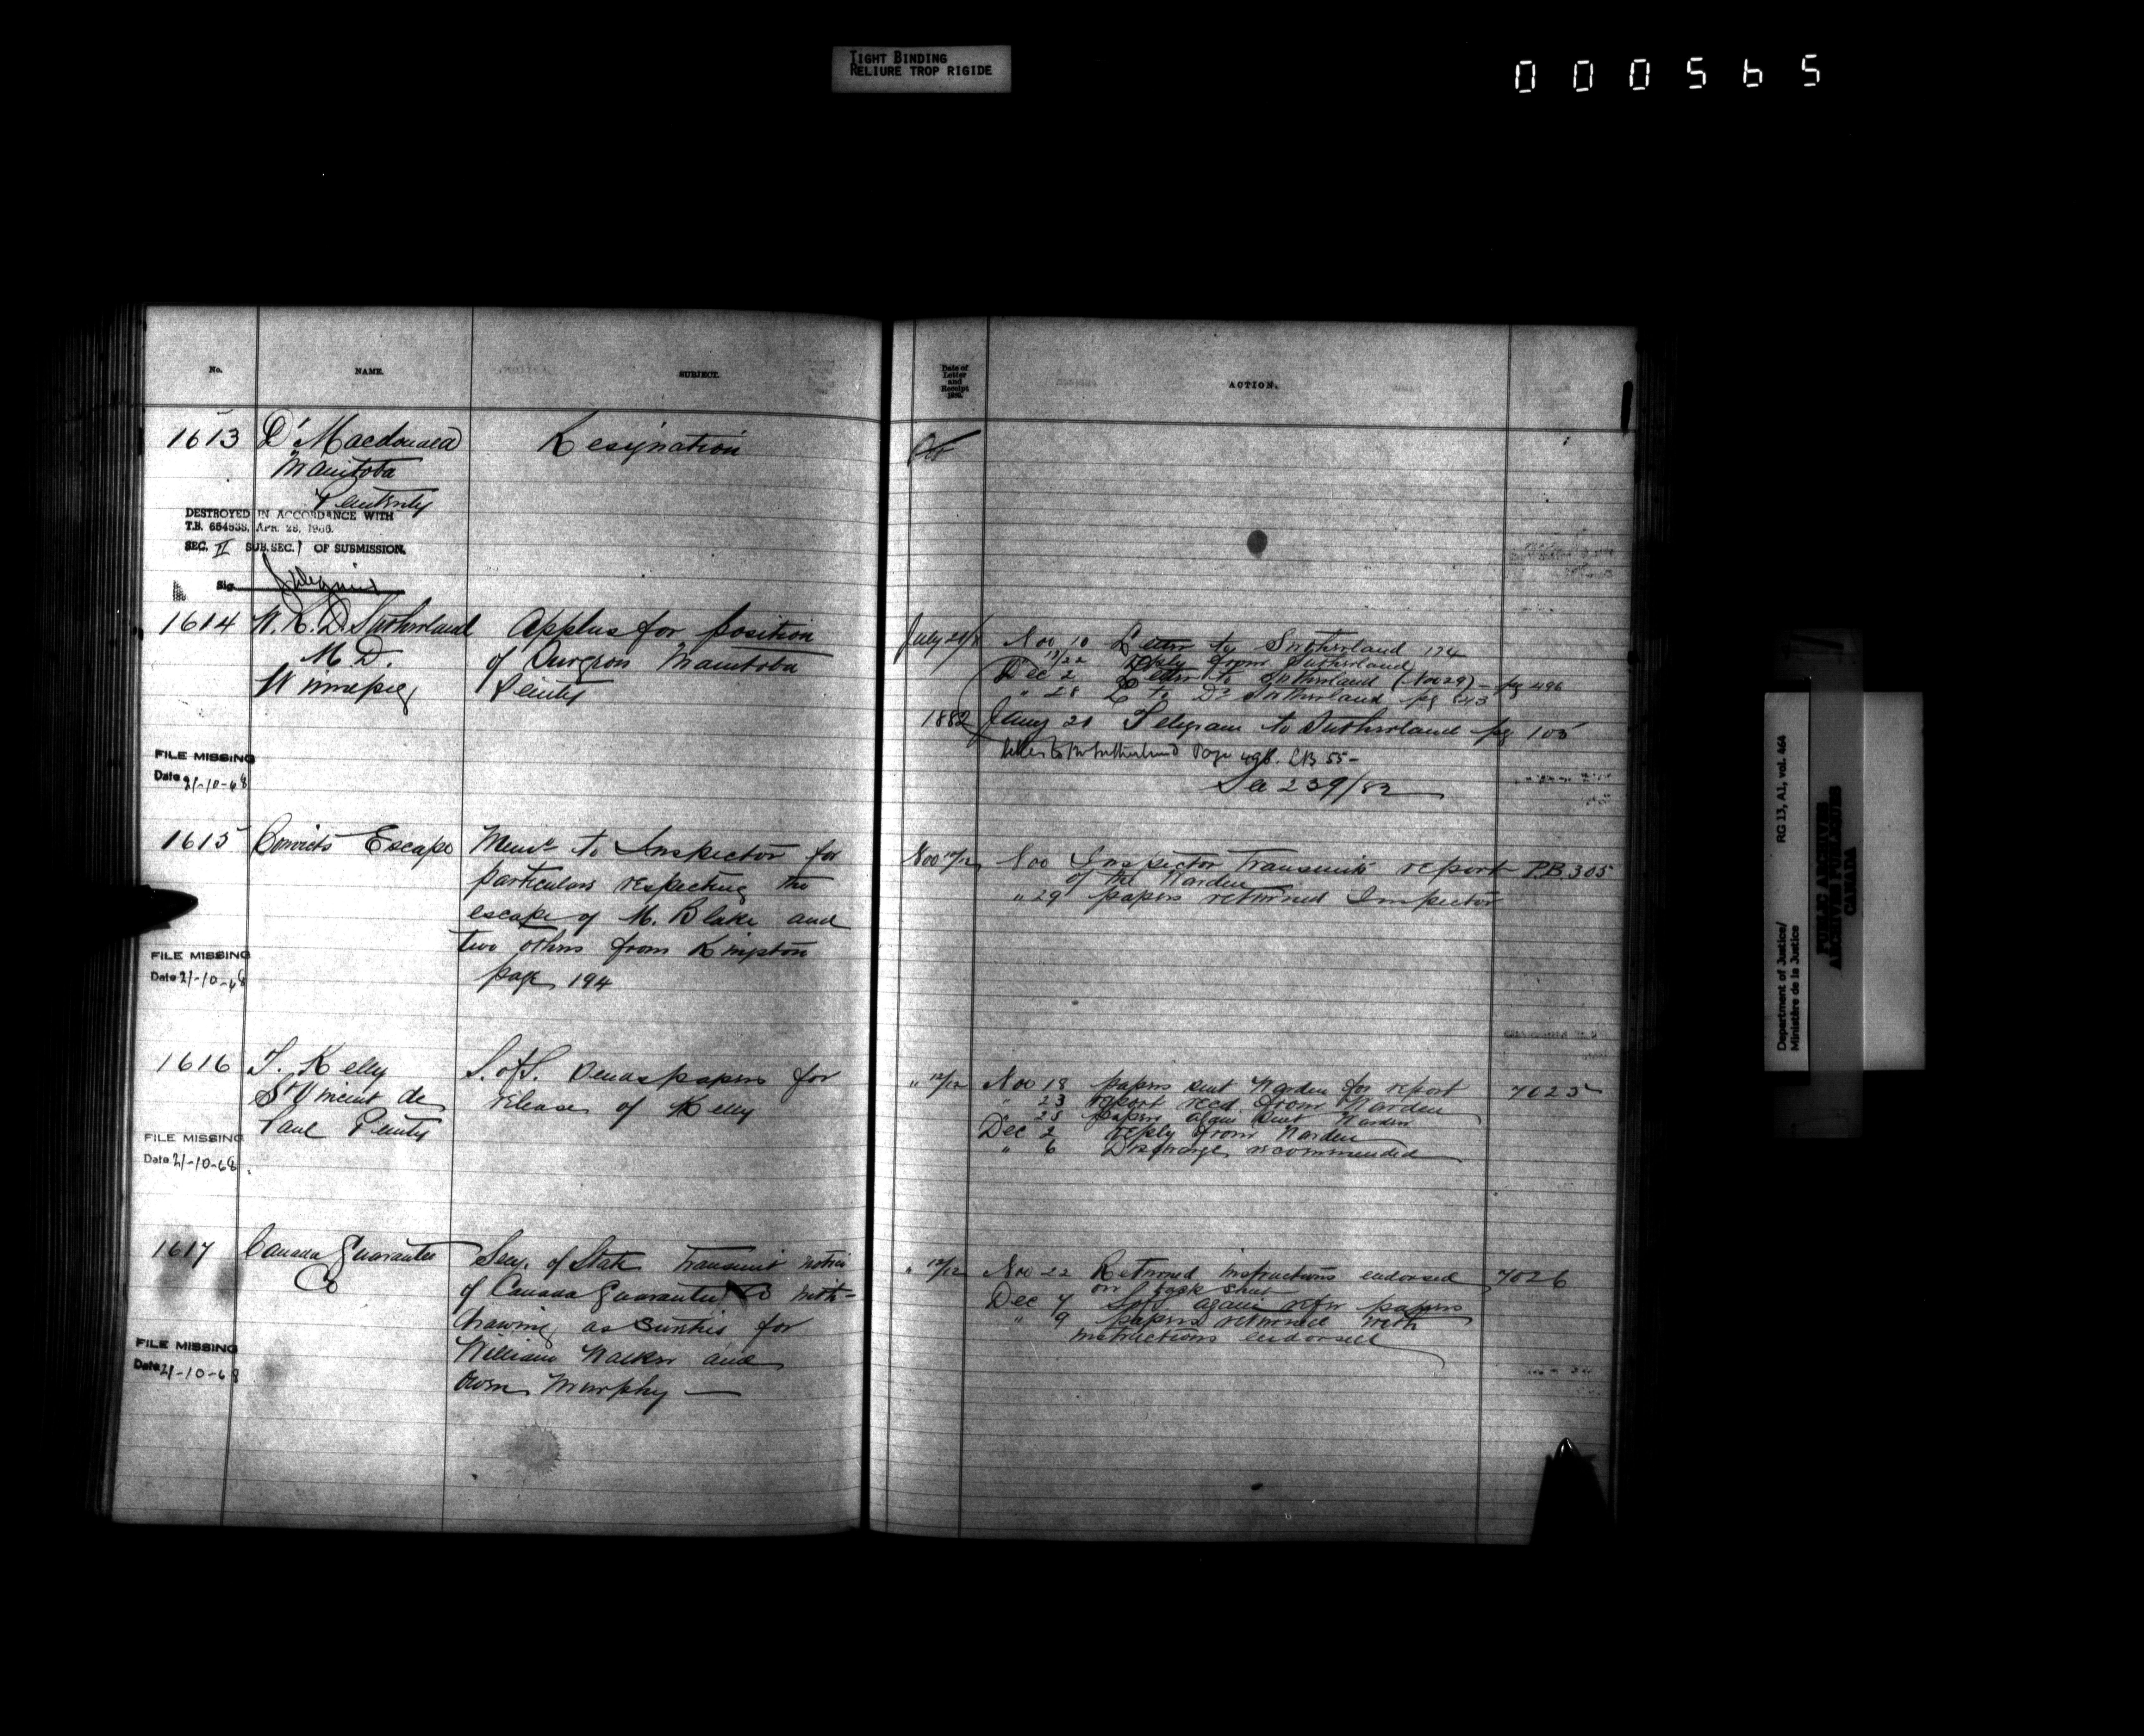 TIGHT BINDING
RELIURE TROP RIGIDE
000565
No. NAME. SUBJECT.
Date of
Letter
and
Receipt
ACTION.
1613 Dr Macdonald Resignation
Manitoba
Penitnty
DESTROYED IN ACCORDANCE WITH
T.B. 654533, APR. 28, 1966.
SEC. II SUB.SEC. 1 OF SUBMISSION.
Sig
1614 W. R. D. Sutherland Applies for position
M D. of Surgeon Manitoba
Winnipeg Penity
FILE MISSING
Date 21-10-68
July Nov 10 Letter to Sutherland 174
reply from Sutherland
Dec 2 Letter to Sutherland (Nov 29) pg 496
" 28 L to Dr Sutherland pg 643
1882 Jany 21 Telegram to Sutherland pg 105
letter to Dr Sutherland Page 498. LB 55-
See 239/82
1615 Convicts Escape Memo to Inspector for
particulars respecting the
escape of M. Blake and
two others from Kingston
page 194
FILE MISSING
Date 21-10-68
Nov Nov Inspector Transmits report P.B. 305
of the Warden
" 29 papers returned Inspector
1616 T. Kelly S. of S. Sends papers for
St Vincent de release of Kelly
Paul Penity
FILE MISSING
Date 21-10-68.
" 12/12 Nov 18 papers sent Warden for report 7025
" 23 report recd. from Warden
" 25 papers again sent Warden
Dec 2 reply from Warden
" 6 Discharge recommended
1617 Canada Guarantee Secy. of State Transmit notice
Co of Canada Guarantee Co with-
drawing as sureties for
William Walker and
Owen Murphy —
FILE MISSING
Date 21-10-68
" 12/12 Nov 22 Returned instructions endorsed 7026
on back sheet
Dec 7 S of S. again refer papers
" 9 papers returned with
instructions endorsed
Department of Justice/ RG 13, A1, vol. 464
Ministère de la Justice
PUBLIC ARCHIVES
ARCHIVES PUBLIQUES
CANADA